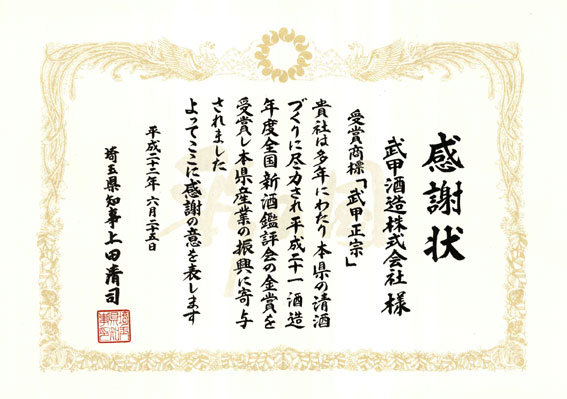 感謝状
武甲酒造株式会社 様
受賞商標「武甲正宗」
貴社は多年にわたり本県の清酒
づくりに尽力され平成二十一酒造
年度全国新酒鑑評会の金賞を
受賞し本県産業の振興に寄与
されました
よってここに感謝の意を表します
平成二十二年 六月二十五日
埼玉県知事上田清司